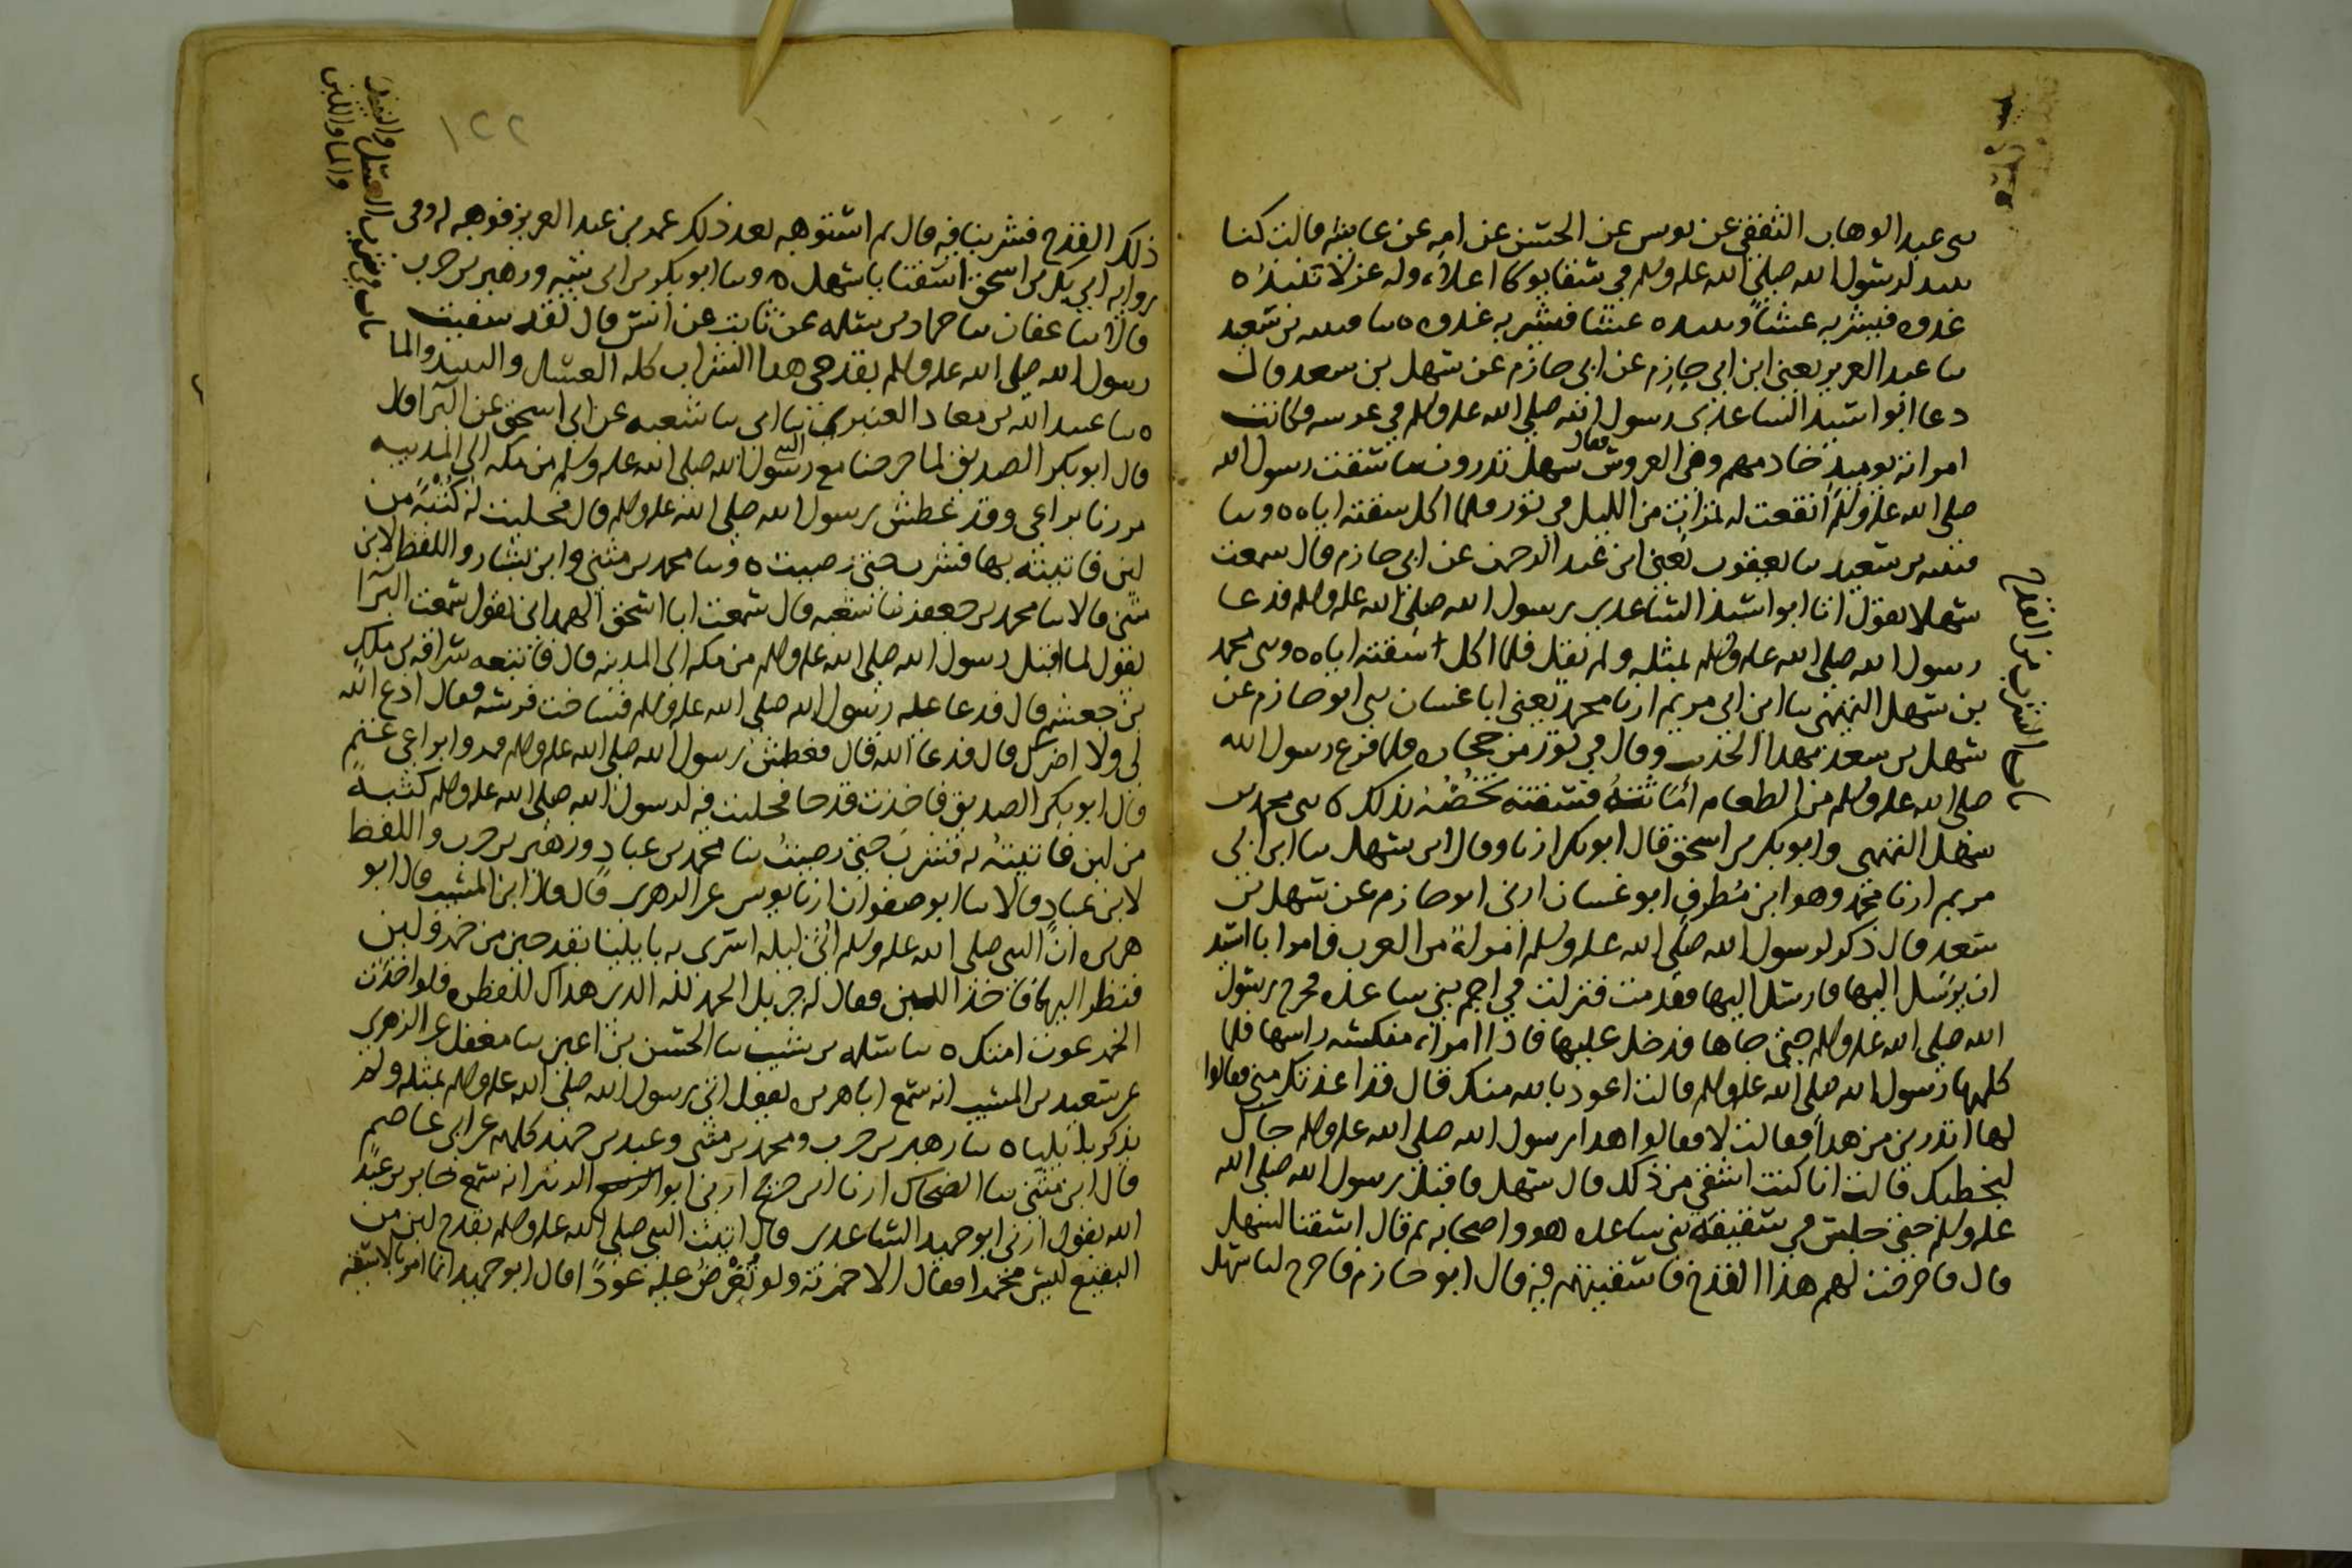 عبد الوهاب الثقفي عن يونس عن الحسن عن امه عن عايشه قالت كنا
ننبذ لرسول الله صلى الله عليه وسلم في سقا يوكا اعلاه وله عزلا ننبذه
غدوه فيشربه عشا وننبذه عشا فيشربه غدوه ه سا قتيبه بن سعيد
سا عبد العزيز يعني ابن ابي حازم عن ابي حازم عن سهل بن سعد قال
دعا ابو اسيد الساعدي رسول الله صلى الله عليه وسلم في عرسه وكانت
امراته يوميذ خادمهم وهي العروس فقال سهل تدرون ما سقت رسول الله
صلى الله عليه وسلم انقعت له تمرات من الليل في تور فلما اكل سقته اياه ه وسا
قتيبه بن سعيد سا يعقوب يعني ابن عبد الرحمن عن ابي حازم قال سمعت
سهلا يقول اتا ابو اسيد الساعدي رسول الله صلى الله عليه وسلم فدعا
رسول الله صلى الله عليه وسلم بمثله ولم يقل فلما اكل سقته اياه ه وسي محمد
بن سهل التميمي سا ابن ابي مريم ارنا محمد يعني ابا غسان سي ابو حازم عن
سهل بن سعد بهدا الحديث وقال في تور من حجاره فلما فرغ رسول الله
صلى الله عليه وسلم من الطعام اماثته فسقته تخصه بذلك ه سي محمد بن
سهل التميمي وابو بكر بن اسحق قال ابو بكر ارنا وقال ابن سهل سا ابن ابي
مريم ارنا محمد وهو ابن مطرف ابو غسان ارني ابو حازم عن سهل بن
سعد قال ذكر لرسول الله صلى الله عليه وسلم امراة من العرب فامر ابا اسيد
ان يرسل اليها فارسل اليها فقدمت فنزلت في اجم بني ساعده فخرج رسول
الله صلى الله عليه وسلم حتى جاها فدخل عليها فاذا امراه منكسه راسها فلما
كلمها رسول الله صلى الله عليه وسلم قالت اعوذ بالله منك قال قد اعذتك مني فقالوا
لها اتدرين من هدا فقالت لا فقالوا هدا رسول الله صلى الله عليه وسلم جاك
ليخطبك قالت انا كنت اشقى من ذلك قال سهل فاقبل رسول الله صلى الله
عليه وسلم حتى جلس في سقيفة بني ساعده هو واصحابه ثم قال اسقنا لسهل
قال فاخرجت لهم هذا القدح فاسقيتهم فيه قال ابو حازم فاخرج لنا سهل
باب الشرب من القدح
١٢٢
ذلك القدح فشربنا فيه قال ثم استوهبه بعد ذلك عمر بن عبد العزيز فوهبه له وفي
روايه ابي بكر بن اسحق اسقنا يا سهل ه وسا ابو بكر بن ابي شيبه وزهير بن حرب
قالا سا عفان سا حماد بن سلمه عن ثابت عن انس قال لقد سقيت
رسول الله صلى الله عليه وسلم بقدحي هدا الشراب كله العسل والنبيذ والما
ه سا عبيد الله بن معاد العنبري سا ابي سا شعبه عن ابي اسحق عن البرا قال
قال ابو بكر الصديق لما خرجنا مع رسول الله صلى الله عليه وسلم من مكه الى المدينه
مررنا براعي وقد عطش رسول الله صلى الله عليه وسلم قال فحلبت له كثبة من
لبن فاتيته بها فشرب حتى رضيت ه وسا محمد بن مثنى وابن بشار واللفظ لابن
مثنى قالا سا محمد بن جعفر سا شعبه قال سمعت ابا اسحق الهمداني يقول سمعت البرا
يقول لما اقبل رسول الله صلى الله عليه وسلم من مكه الى المدينه قال فاتبعه سراقه بن ملك
بن جعشم قال فدعا عليه رسول الله صلى الله عليه وسلم فساخت فرسه فقال ادع الله
لي ولا اضرك قال فدعا الله قال فعطش رسول الله صلى الله عليه وسلم فمروا براعي غنم
قال ابو بكر الصديق فاخذت قدحا فحلبت فيه لرسول الله صلى الله عليه وسلم كثبة
من لبن فاتيته به فشرب حتى رضيت سا محمد بن عباد وزهير بن حرب واللفظ
لابن عباد قالا سا ابو صفوان ارنا يونس عن الزهري قال قال ابن المسيب قال ابو
هريره ان النبي صلى الله عليه وسلم اتي ليله اسري به بايليا بقدحين من خمر ولبن
فنظر اليهما فاخذ اللبن فقال له جبريل الحمد لله الذي هداك للفطره فلو اخذت
الخمر غوت امتك ه سا سلمه بن شبيب سا الحسن بن اعين سا معقل عن الزهري
عن سعيد بن المسيب انه سمع ابا هريره يقول اتي رسول الله صلى الله عليه وسلم بمثله ولم
يذكر بايليا ه سا زهير بن حرب ومحمد بن مثنى وعبد بن حميد كلهم عن ابي عاصم
قال ابن مثنى سا الضحاك ارنا ابن جريج ارني ابو الزبير انه سمع جابر بن عبد
الله يقول ارني ابو حميد الساعدي قال اتيت النبي صلى الله عليه وسلم بقدح لبن من
النقيع ليس مخمرا فقال الا خمرته ولو تعرض عليه عودا قال ابو حميد انما امر بالاسقيه
باب في شرب العسل والنبيذ
والما واللبن